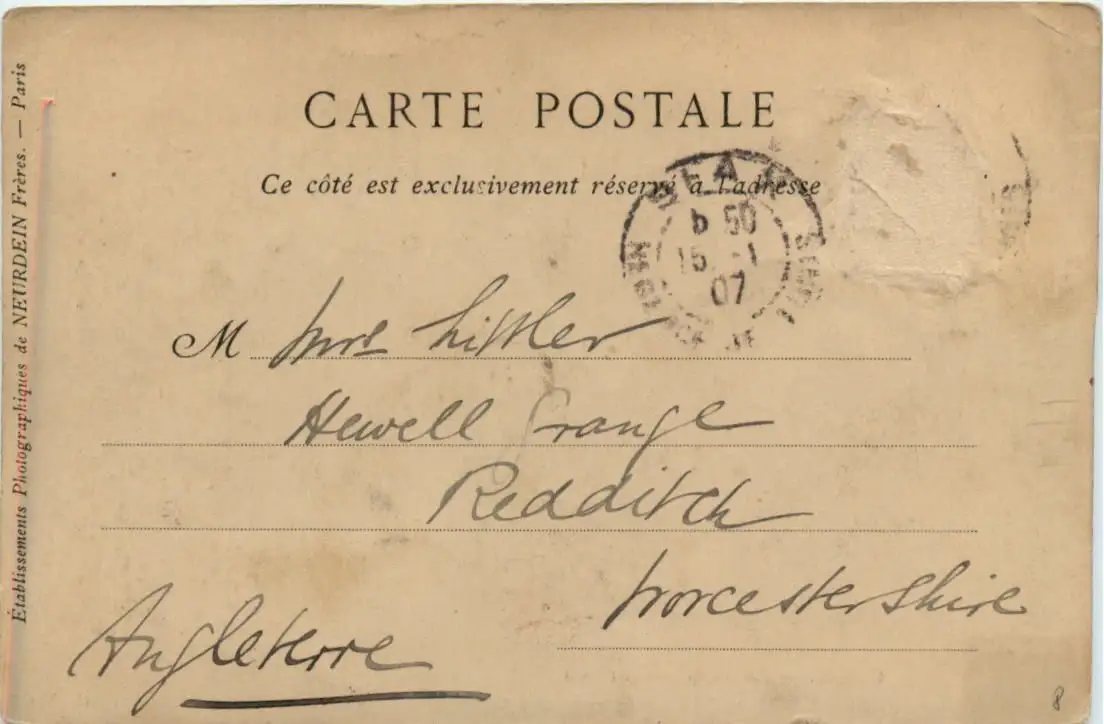 CARTE POSTALE
Ce côté est exclusivement réservé a l'adresse
50
15 -1
07
M Mrs Littler
Hewell Grange
Redditch
Worcestershire
Angleterre
Établissements Photographiques de NEURDEIN Frères. — Paris
8